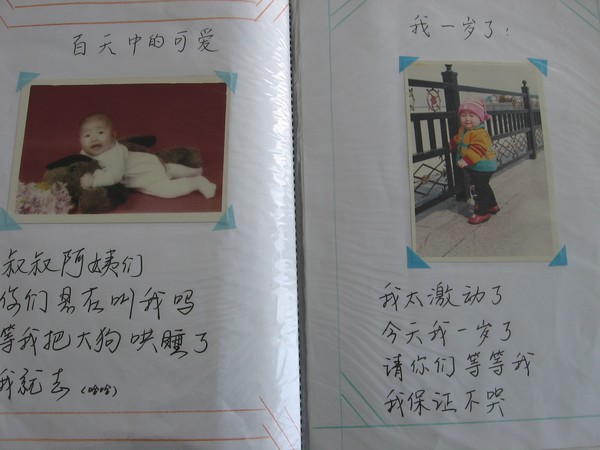 百天中的可爱
叔叔阿姨们
你们是在叫我吗
等我把大狗哄睡了
我就去（哈哈）
我一岁了！
我太激动了
今天我一岁了
请你们等等我
我保证不哭